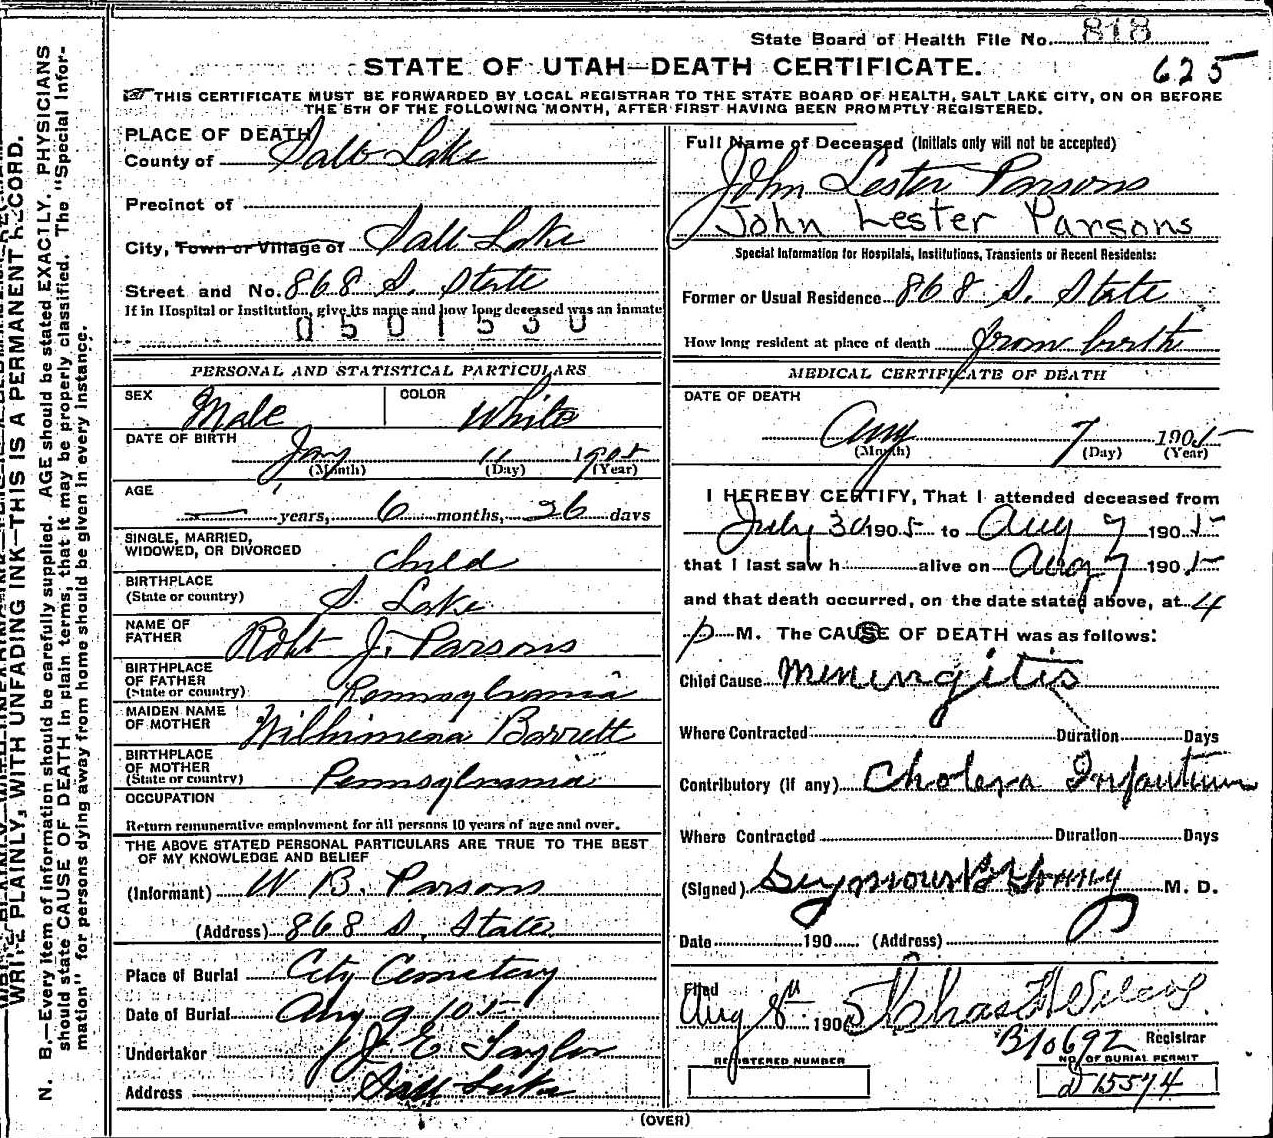 State Board of Health File No. 818
625
STATE OF UTAH—DEATH CERTIFICATE.
THIS CERTIFICATE MUST BE FORWARDED BY LOCAL REGISTRAR TO THE STATE BOARD OF HEALTH, SALT LAKE CITY, ON OR BEFORE
THE 5TH OF THE FOLLOWING MONTH, AFTER FIRST HAVING BEEN PROMPTLY REGISTERED.
WRITE PLAINLY, WITH UNFADING INK—THIS IS A PERMANENT RECORD.
N. B.—Every item of information should be carefully supplied. AGE should be stated EXACTLY. PHYSICIANS
should state CAUSE OF DEATH in plain terms, that it may be properly classified. The "Special Infor-
mation" for persons dying away from home should be given in every instance.
PLACE OF DEATH
County of Salt Lake
Precinct of
City, Town or Village of Salt Lake
Street and No. 868 S. State
If in Hospital or Institution, give its name and how long deceased was an inmate
0501530
PERSONAL AND STATISTICAL PARTICULARS
SEX Male COLOR White
DATE OF BIRTH
Jan 11 1905
(Month) (Day) (Year)
AGE
years, 6 months, 26 days
SINGLE, MARRIED,
WIDOWED, OR DIVORCED Child
BIRTHPLACE
(State or country) S. Lake
NAME OF
FATHER Robt J. Parsons
BIRTHPLACE
OF FATHER
(State or country) Pennsylvania
MAIDEN NAME
OF MOTHER Wilhimena Barrett
BIRTHPLACE
OF MOTHER
(State or country) Pennsylvania
OCCUPATION
Return remunerative employment for all persons 10 years of age and over.
THE ABOVE STATED PERSONAL PARTICULARS ARE TRUE TO THE BEST
OF MY KNOWLEDGE AND BELIEF
(Informant) W B. Parsons
(Address) 868 S. State
Place of Burial City Cemetery
Date of Burial Aug 9 105
Undertaker J E Taylor
Address Salt Lake
Full Name of Deceased (Initials only will not be accepted)
John Lester Parsons
John Lester Parsons
Special Information for Hospitals, Institutions, Transients or Recent Residents:
Former or Usual Residence 868 S. State
How long resident at place of death from birth
MEDICAL CERTIFICATE OF DEATH
DATE OF DEATH
Aug 7 1905
(Month) (Day) (Year)
I HEREBY CERTIFY, That I attended deceased from
July 30 1905 to Aug 7 1905
that I last saw h alive on Aug 7 1905
and that death occurred, on the date stated above, at 4
p M. The CAUSE OF DEATH was as follows:
Chief Cause Meningitis
Where Contracted Duration Days
Contributory (if any) Cholera Infantum
Where Contracted Duration Days
(Signed) Seymour B Young M. D.
Date 190 (Address)
Filed
Aug 8th 1905 Chas
B10692 Registrar
REGISTERED NUMBER
NO. OF BURIAL PERMIT
D 15574
(OVER)